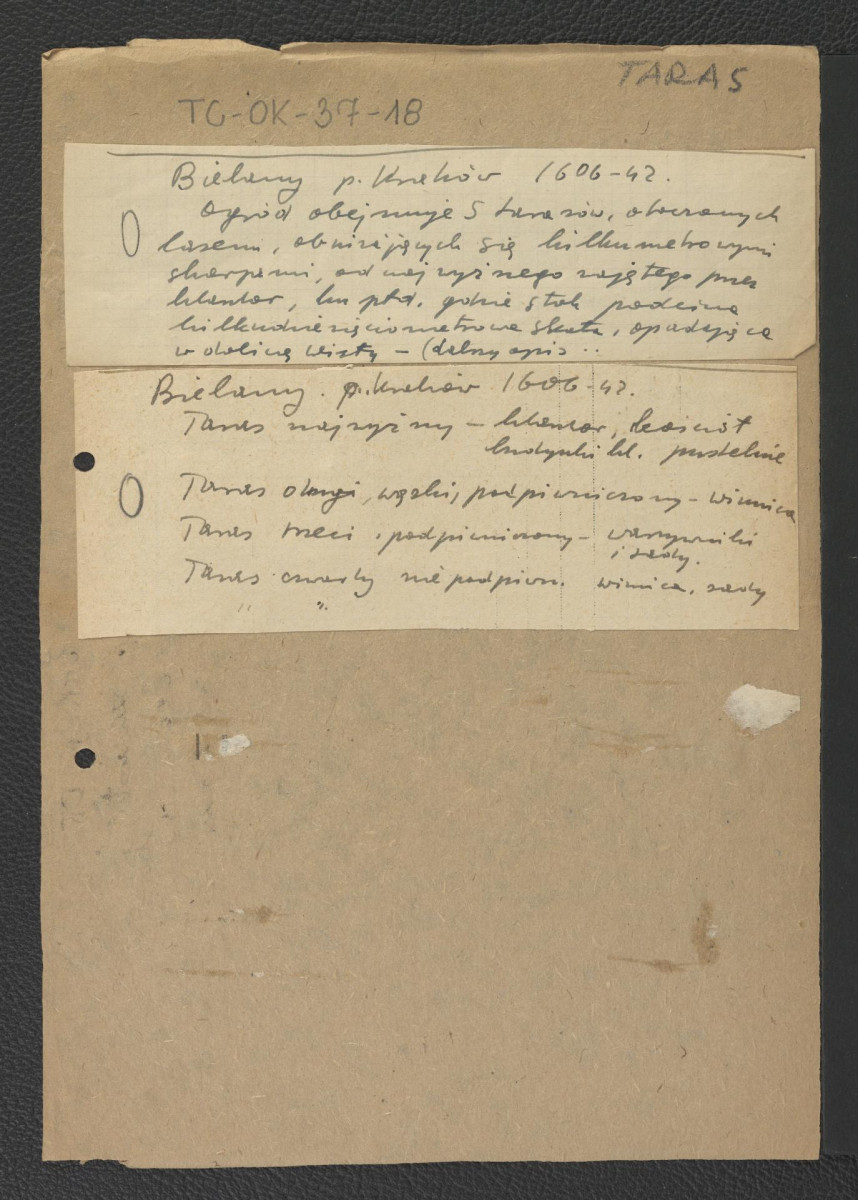 TARAS
TG-OK-37-18
Bielany p. Kraków 1606-42.
Ogród obejmuje 5 tarasów, otoczonych
lasem, obniżających się kilkumetrowymi
skarpami, od najwyższego zajętego przez
klasztor, ku płd. gdzie stok podcina
kilkudziesięciometrowa skała, opadająca
w dolinę Wisły – (dalszy opis ..
Bielany. p. Kraków 1606-42.
Taras najwyższy – klasztor, kościół
budynki kl. pustelnie
Taras drugi, wąski, podpiwniczony – winnica
Taras trzeci, podpiwniczony – warzywniki
i sady.
Taras czwarty nie podpiwn. winnica, sady
" ".